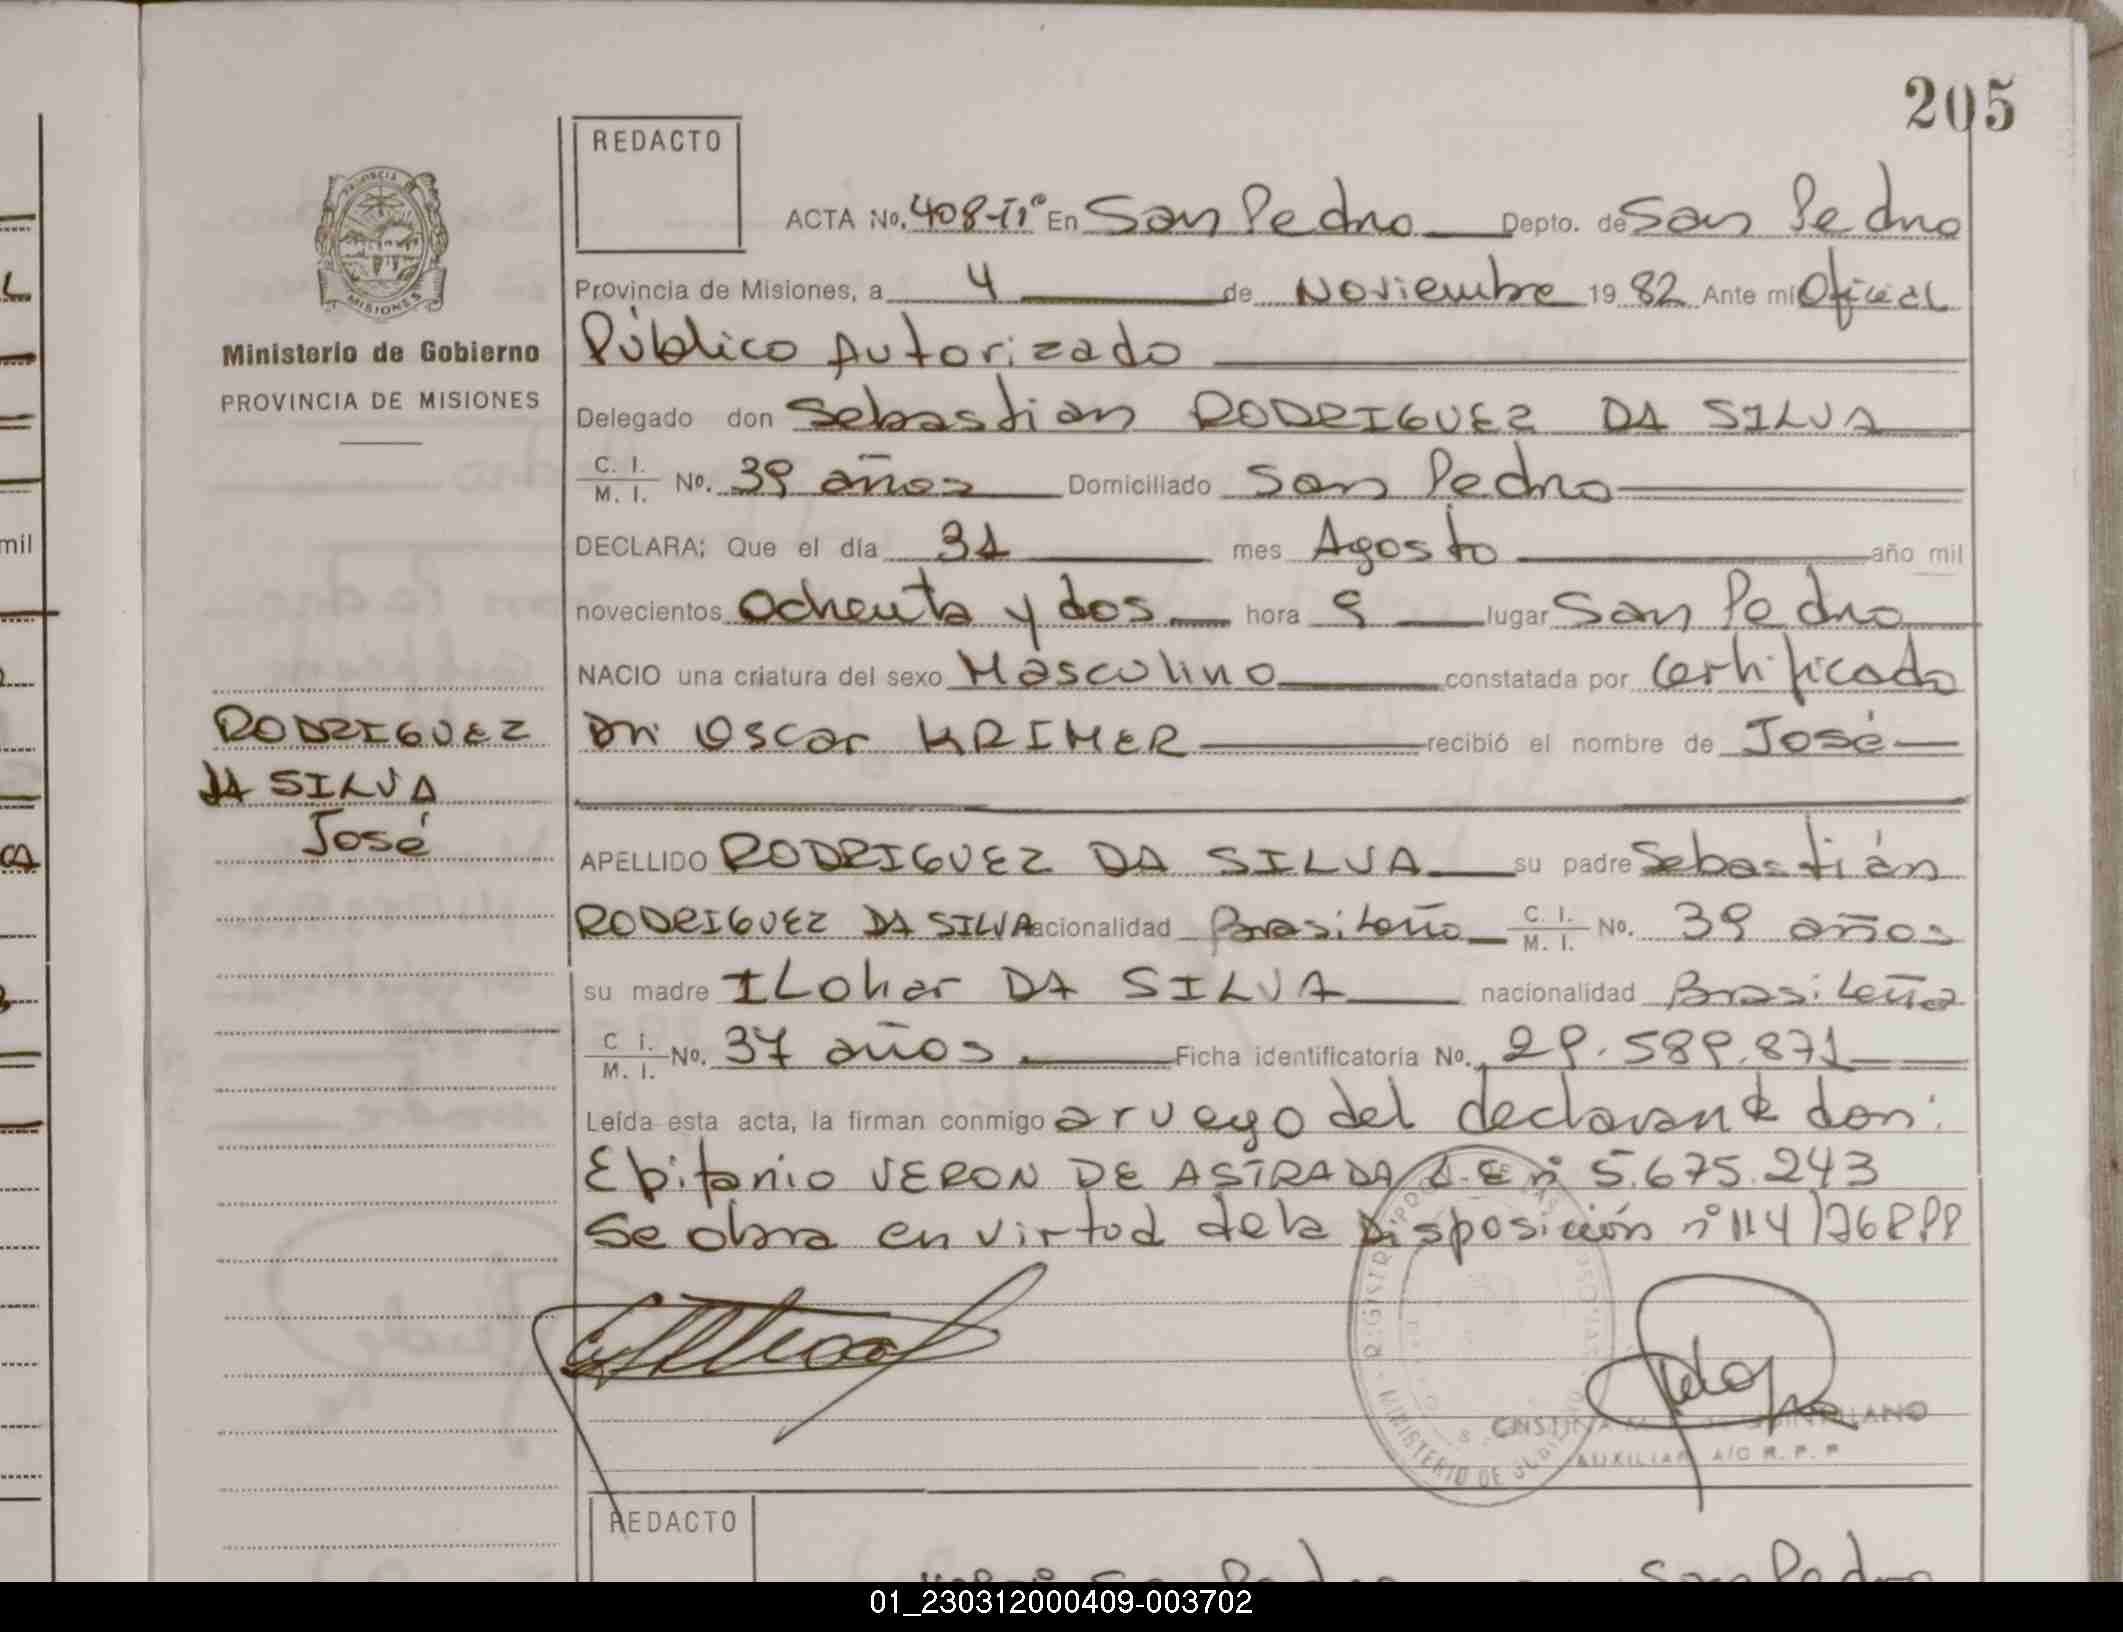 205
REDACTO
ACTA No. 408-Tº En San Pedro Depto. de San Pedro
Provincia de Misiones, a 4 de Noviembre 19 82 Ante mi Oficial
Ministerio de Gobierno
Público Autorizado
PROVINCIA DE MISIONES
Delegado don Sebastian RODRIGUEZ DA SILVA
C. I. / M. I. No. 39 años Domiciliado San Pedro
DECLARA; Que el día 31 mes Agosto año mil
novecientos Ochenta y dos hora 9 lugar San Pedro
NACIO una criatura del sexo Masculino constatada por Certificado
RODRIGUEZ
DA SILVA
José
Dr. Oscar KRIMER recibió el nombre de José
APELLIDO RODRIGUEZ DA SILVA su padre Sebastián
RODRIGUEZ DA SILVA nacionalidad Brasileño C. I. / M. I. No. 39 años
su madre ILohar DA SILVA nacionalidad Brasileña
C I. / M. I. No. 37 años Ficha identificatoria No. 29.589.871
Leída esta acta, la firman conmigo a ruego del declarante don:
Epifanio VERON DE ASTRADA L.E nº 5.675.243
Se obra en virtud de la Disposición nº 114/76
MINISTERIO DE
AUXILIAR A/C R. P. P
REDACTO
San Pedro San Pedro
01_230312000409-003702